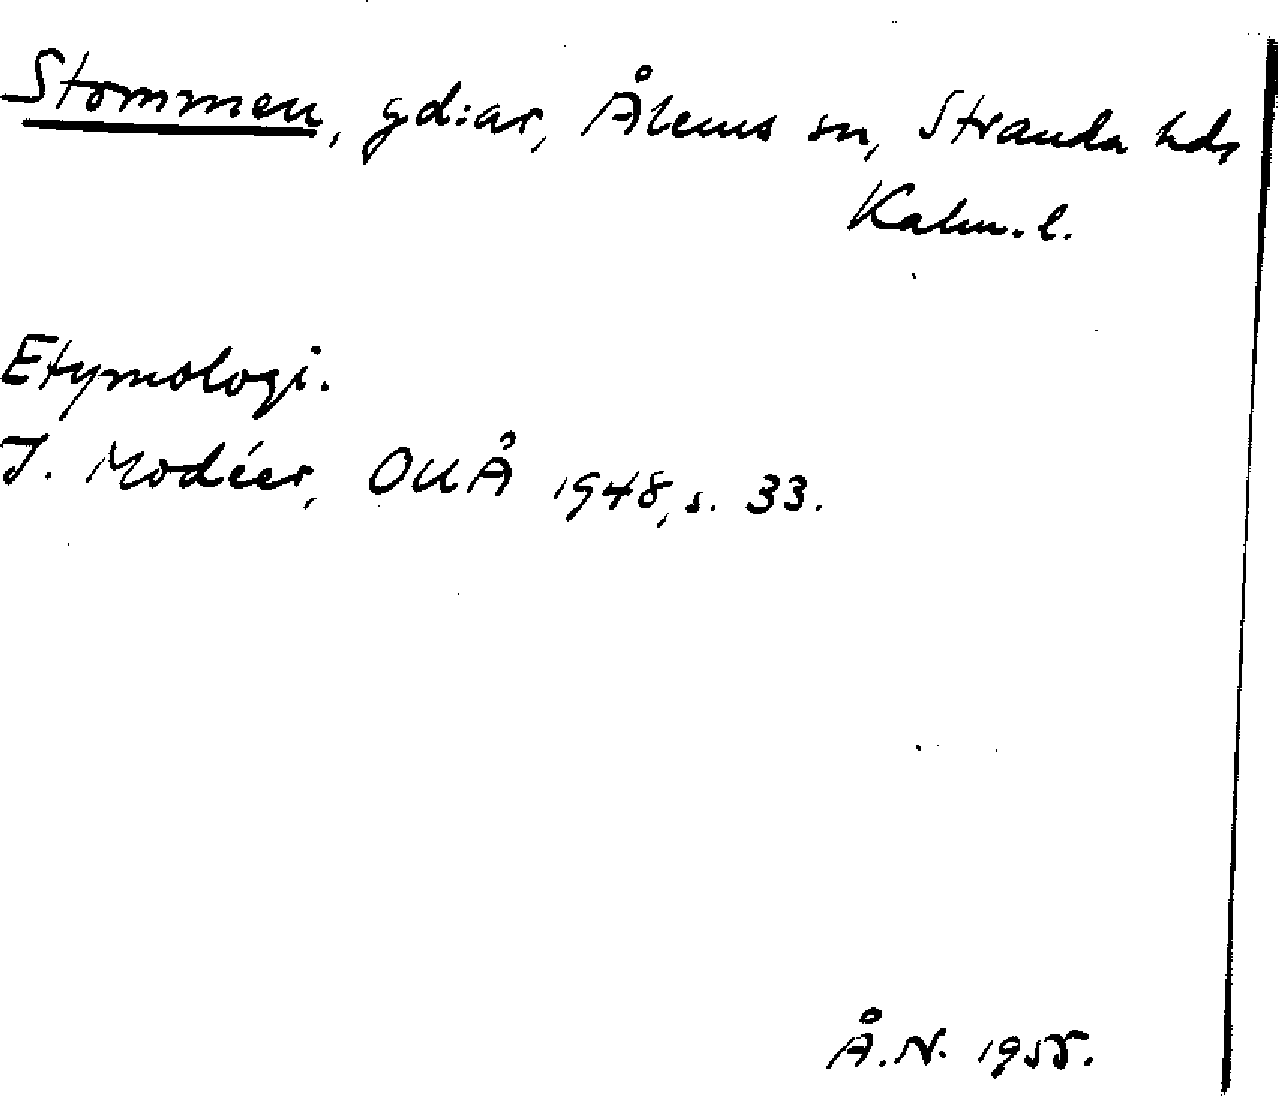 Stommen, gd:ar, Ålems sn, Stranda hd,
Kalm. l.
Etymologi.
I. Modéer, OUÅ 1948, s. 33.
Å.N. 1955.